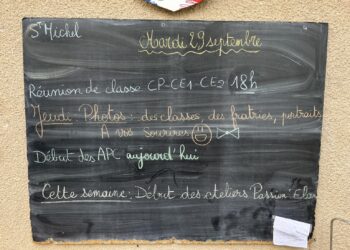 St Michel
Mardi 29 septembre
Réunion de classe CP-CE1-CE2 18h
Jeudi Photos : des classes, des fratries, portraits
À vos Sourires
Début des APC aujourd'hui
Cette semaine : Début des ateliers Passion